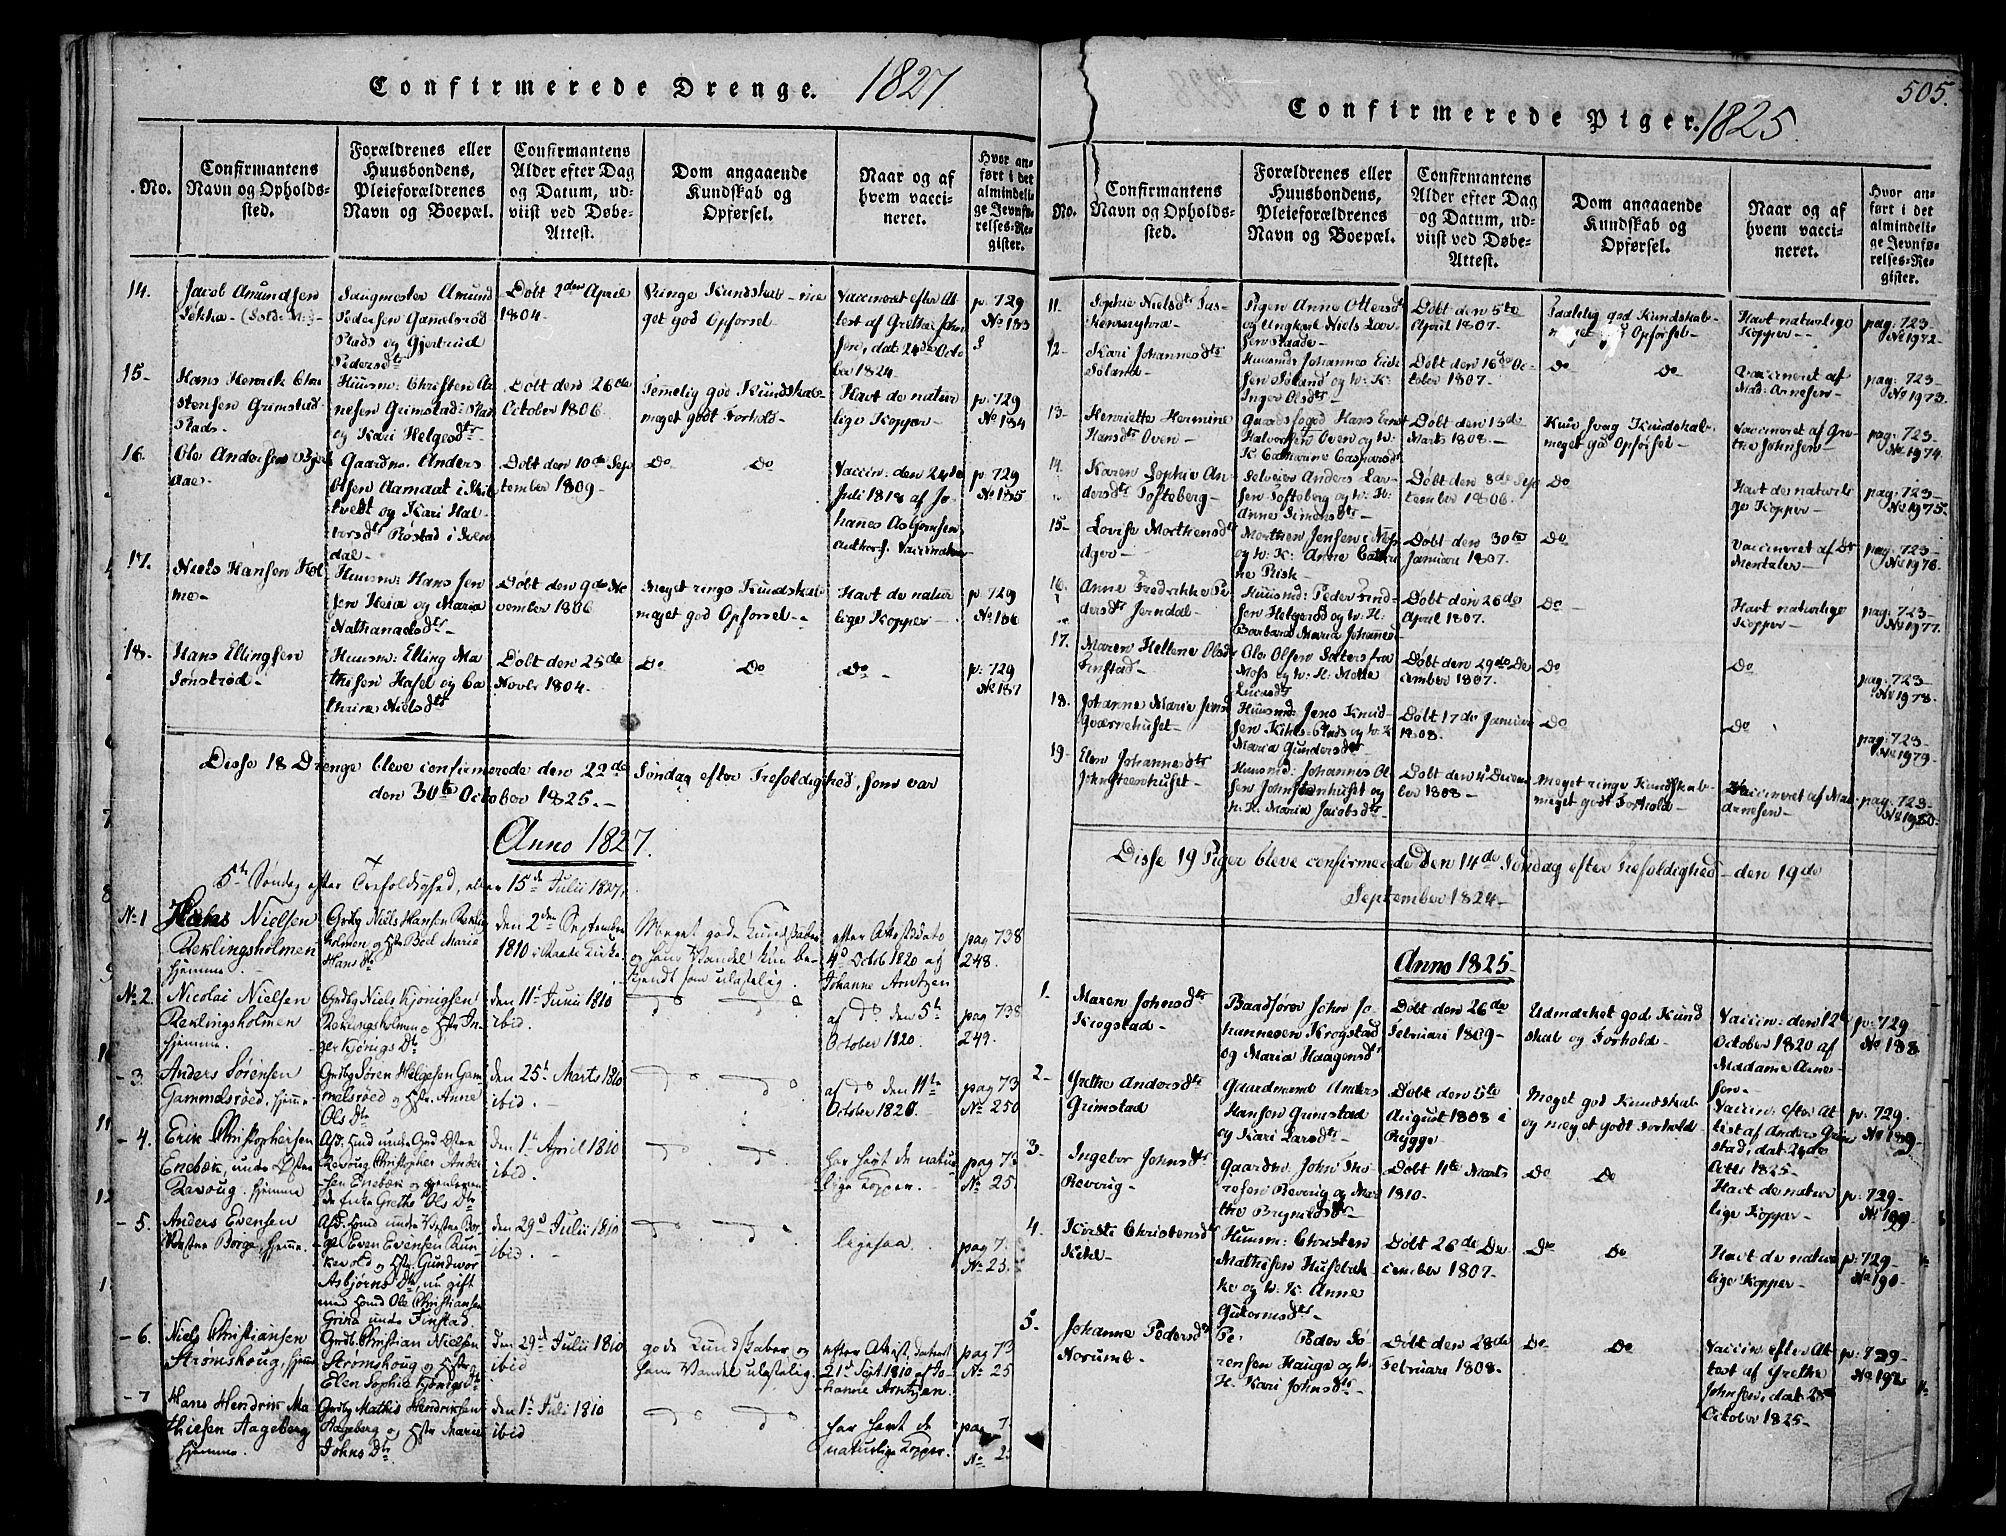 Confirmerede Drenge. 1827.
No.
Confirmantens
Navn og Opholds-
sted.
Forældrenes eller
Huusbondens,
Pleieforældrenes
Navn og Boepæl.
Confirmantens
Alder efter Dag
og Datum, ud-
viist ved Døbe-
Attest.
Dom angaaende
Kundskab og
Opførsel.
Naar og af
hvem vacci-
neret.
Hvor an-
ført i det
almindeli-
ge Jevnfø-
relses-Re-
gister.
14.
Jacob Amundsen
Saugmester Amund
Pedersen Gamelsrød
Plads og Gjertrud
Pedersdtr
Døbt 2den April
1804.
Ringe Kundskab - me
get god Opførsel -
Vaccineret efter At
test af Grethe John
sen, dat 24de Octo
ber 1824 -
p. 729
No 183
15.
Hans Henrik Chri
stensen Grimstad
Plads -
Huusm: Christen Ar
nesen Grimstad: Plad
og Kari Helgesdtr -
Døbt den 26de
October 1806.
Temelig god Kundskab -
meget godt Forhold -
Havt de natur
lige Kopper -
p. 729
No 184
16.
Ole Andersen
Gaardm. Anders
Olsen Aamaat i Skib
tvedt og Kari Hal-
vorsdtr Røstad i
dal -
Døbt den 10de Sep
tember 1809 -
Do Do
Vaccin: den 24de
Juli 1818 af Jo-
hannes Asbjørnsen
authors. Vaccinateur
p. 729
No 185
17.
Niels Hansen Hol
me -
Huusm: Hans Jen
sen Heia og Maria
Nathanaelsdtr -
Døbt den 9de No
vember 1806
Meget ringe Kundskab
meget god Opførsel -
Havt de natur
lige Kopper -
p. 729
No 186
18.
Hans Ellingsen
Sønstrød -
Huusm: Elling Ma
thisen Hasel og Ca
thrine Nielsdtr
Døbt den 25de
Novbr 1804.
Do Do
Do -
p: 729
No 187
Disse 18 Drenge bleve confirmerede den 22de Søndag efter Trefoldighed, som var
den 30te October 1825. -
Anno 1827.
5te Søndag efter Trefoldighed, eller 15de Julii 1827.
No 1
Hans Nielsen
Reklingsholmen
hjemme. -
Grdbr Niels Hansen Rekling
holmen og Hstr Berte Marie
Hans Dtr
den 2den September
1810 i Raade Kirke.
Meget gode Kundskaber
og hans Vandel kun be-
kjendt som ulastelig.
efter Attest dato
4de Octob 1820 af
Johanne Arntzen
pag 738
248.
No 2.
Nicolai Nielsen
Reklingsholmen
hjemme.
Grdbr Niels Kjønigsen
Reklingsholmen og Hstr In-
ger Kjønigs Dtr
den 11te Junii 1810
ibid.
Do Do
af Do den 5te
October 1820.
pag 738
249.
- 3.
Anders Sørensen
Gammelsrøed, hjemme
Grdbr Søren Helgesen Gam
melsrøed og Hstr Anne
Ols Dtr
den 25te Marts 1810
ibid. -
Do Do
af Do den 11te
October 1820.
pag 73
No 250
- 4.
Erik Christophersen
Enebæk, under Østre
Revoug. hjemme
Afsk. Huusmd under Grd Østre
Revoug Christopher Ander
sen Enebæk og
de Enke Grethe Ols Dtr
den 1te April 1810
ibid.
Do Do
har havt de natur
lige Kopper. -
pag 73
No 25.
- 5.
Anders Evensen
Vestre Borge, hjemme.
ge Even Evensen Run
kevold og Hstr Gundvor
Asbjørns Dtr, nu gift
med Huusmd Ole Christiansen
Grina under Finstad.
den 29de Julii 1810
ibid.
Do Do
ligesaa.
pag 7.
No 25.
- 6.
Niels Christiansen
Strømshoug, hjemme
Grdbr. Christian Nielsen
Strømshoug og Hstr
Elen Sophie Kjønigs Dtr
den 29de Julii 1810
ibid
gode Kundskaber og
hans Vandel ulastelig.
efter Attest, dateret
21de Sept 1810 af Jo-
hanne Arntzen.
pag 73
No 25
- 7
Hans Hendrik Ma
thiesen Aageberg
hjemme.
Grdbr Mathis Hendriksen
Aageberg og Hstr Marie
Johns Dtr
den 1te Juli 1810
ibid
Do Do
har havt de
naturlige Kopper.
pag 7
No 2
505.
Confirmerede Piger. 1825.
No.
Confirmantens
Navn og Opholds-
sted.
Forældrenes eller
Huusbondens,
Pleieforældrenes
Navn og Boepæl.
Confirmantens
Alder efter Dag
og Datum, ud-
viist ved Døbe-
Attest.
Dom angaaende
Kundskab og
Opførsel.
Naar og af
hvem vacci-
neret.
Hvor an-
ført i det
almindeli-
ge Jevnfø-
relses-Re-
gister.
11.
Sophie Nielsdtr
Pigen Anne Ottersdtr
og Ungkarl Niels Lar
sen Raade -
Døbt den 5te
April 1807.
Taalelig god Kundskab -
meget god Opførsel -
Havt naturlige
Kopper -
pag: 723 -
No 1972 -
12.
Kari Johannesdtr
Søland -
Huusmd: Johannes Erik
sen Søland og h: K:
Inger Olsdtr -
Døbt den 16de Oc-
tober 1807.
Do Do
Vaccineret af
Mad: Arnesen -
pag: 723 -
No 1973.
13.
Henriette Hermine
Hansdtr Oven -
Gaardsfoged Hans Ernst
Halvorsen Oven og h:
K. Catharine Caspersdtr
Døbt den 13de
Marts 1808. -
Kun svag Kundskab -
meget god Opførsel -
Vaccineret af Gre-
the Johnsen -
pag: 723 -
No 1974.
14.
Karen Sophie An-
dersdtr Tofteberg -
Selveier Anders Lar-
sen Tofteberg og h: K:
Anne Simensdtr -
Døbt den 8de Sep
tember 1806.
Do
Havt de naturli
ge Kopper -
pag: 723 -
No 1975.
15.
Lovise Morthensdtr
Ager -
Morthen Jensen i Næs
og h: K: Anne Cathri
ne Risk -
Døbt den 30te
Januari 1807.
Do
Vaccineret af Dr
Mentzler -
pag: 723 -
No 1976.
16.
Anne Fredrikke Pe
dersdtr Jerndal -
Huusmd: Peder
sen Helgerød og h. K.
Barbara Maria Johannesd
Døbt den 26de
April 1807.
Do -
Havt naturlige
Kopper -
pag: 723 -
No 1977.
17.
Maren Hellene Olsdtr
Finstad -
Ole Olsen Sæter fra
Moss og h: K: Mette
Lucasdtr
Døbt den 29de De
cember 1807.
Do
Do
pag: 723 -
No 1978.
18.
Johanne Marie Jensd
Qværnehuset -
Huusmd: Jens Knud-
sen Kihls-Plads og h: K
Maria Gundersdtr
Døbt 17de Januar
1808.
Do
Do
pag: 723 -
No 1979 -
19 -
Elen Johannesdtr
Johnsteenhuset -
Huusmd: Johannes Ol
sen Johnstenhuset og
h. K. Maria Jacobsdtr
Døbt den 4de Decem
ber 1808 -
Meget ringe Kundskab -
meget godt Forhold -
Vaccineret af Mad
Arnesen -
pag: 723 -
No 1980.
Disse 19 Piger bleve confirmerede Den 14de Søndag efter Trefoldighed - den 19de
September 1824 -
Anno 1825 -
1.
Maren Johnsdtr
Krogstad -
Baadfører John Jo
hannesen Krogstad
og Maria Haagensdtr
Døbt den 26de
Februari 1809 -
Udmærket god Kund
skab og Forhold -
Vaccin: den 12te
October 1820 af
Madame Arne-
sen -
p: 729
No 188
2 -
Grethe Andersdtr
Grimstad
Gaardmand Anders
Hansen Grimstad
og Kari Larsdtr -
Døbt den 5te
August 1808 i
Rygge -
Meget god Kundskab
og meget godt Forhold -
Vaccin: efter At
test af Anders Grim
stad, dat 24de
Octbr 1825 -
p: 729.
No 189 -
3 -
Ingebor Johnsdtr
Revoug -
Gaardm: John Tho
resen Revoug og Mar
the Brynildsdtr -
Døbt 11te Marts
1810.
Do Do
Havt de natur
lige Kopper -
p: 729 -
No 189.
4.
Kirsti Christensdtr
Kihl -
Huusm: Christen
Mathisen Husebæk
ke og h: K: Anne
Gutormsdtr -
Døbt 26de De
cember 1807 -
Do Do
Havt de natur
lige Kopper -
p: 729 -
No 190 -
5 -
Johanne Pedersdtr
Norumb -
Peder Sø-
rensen Hauge og h.
K. Kari Johnsdtr
Døbt den 28de
Februari 1808 -
Do Do
Vaccin efter At
test af Grethe
Johnsen, dat 25de
October 1825 -
p: 729 -
No 192